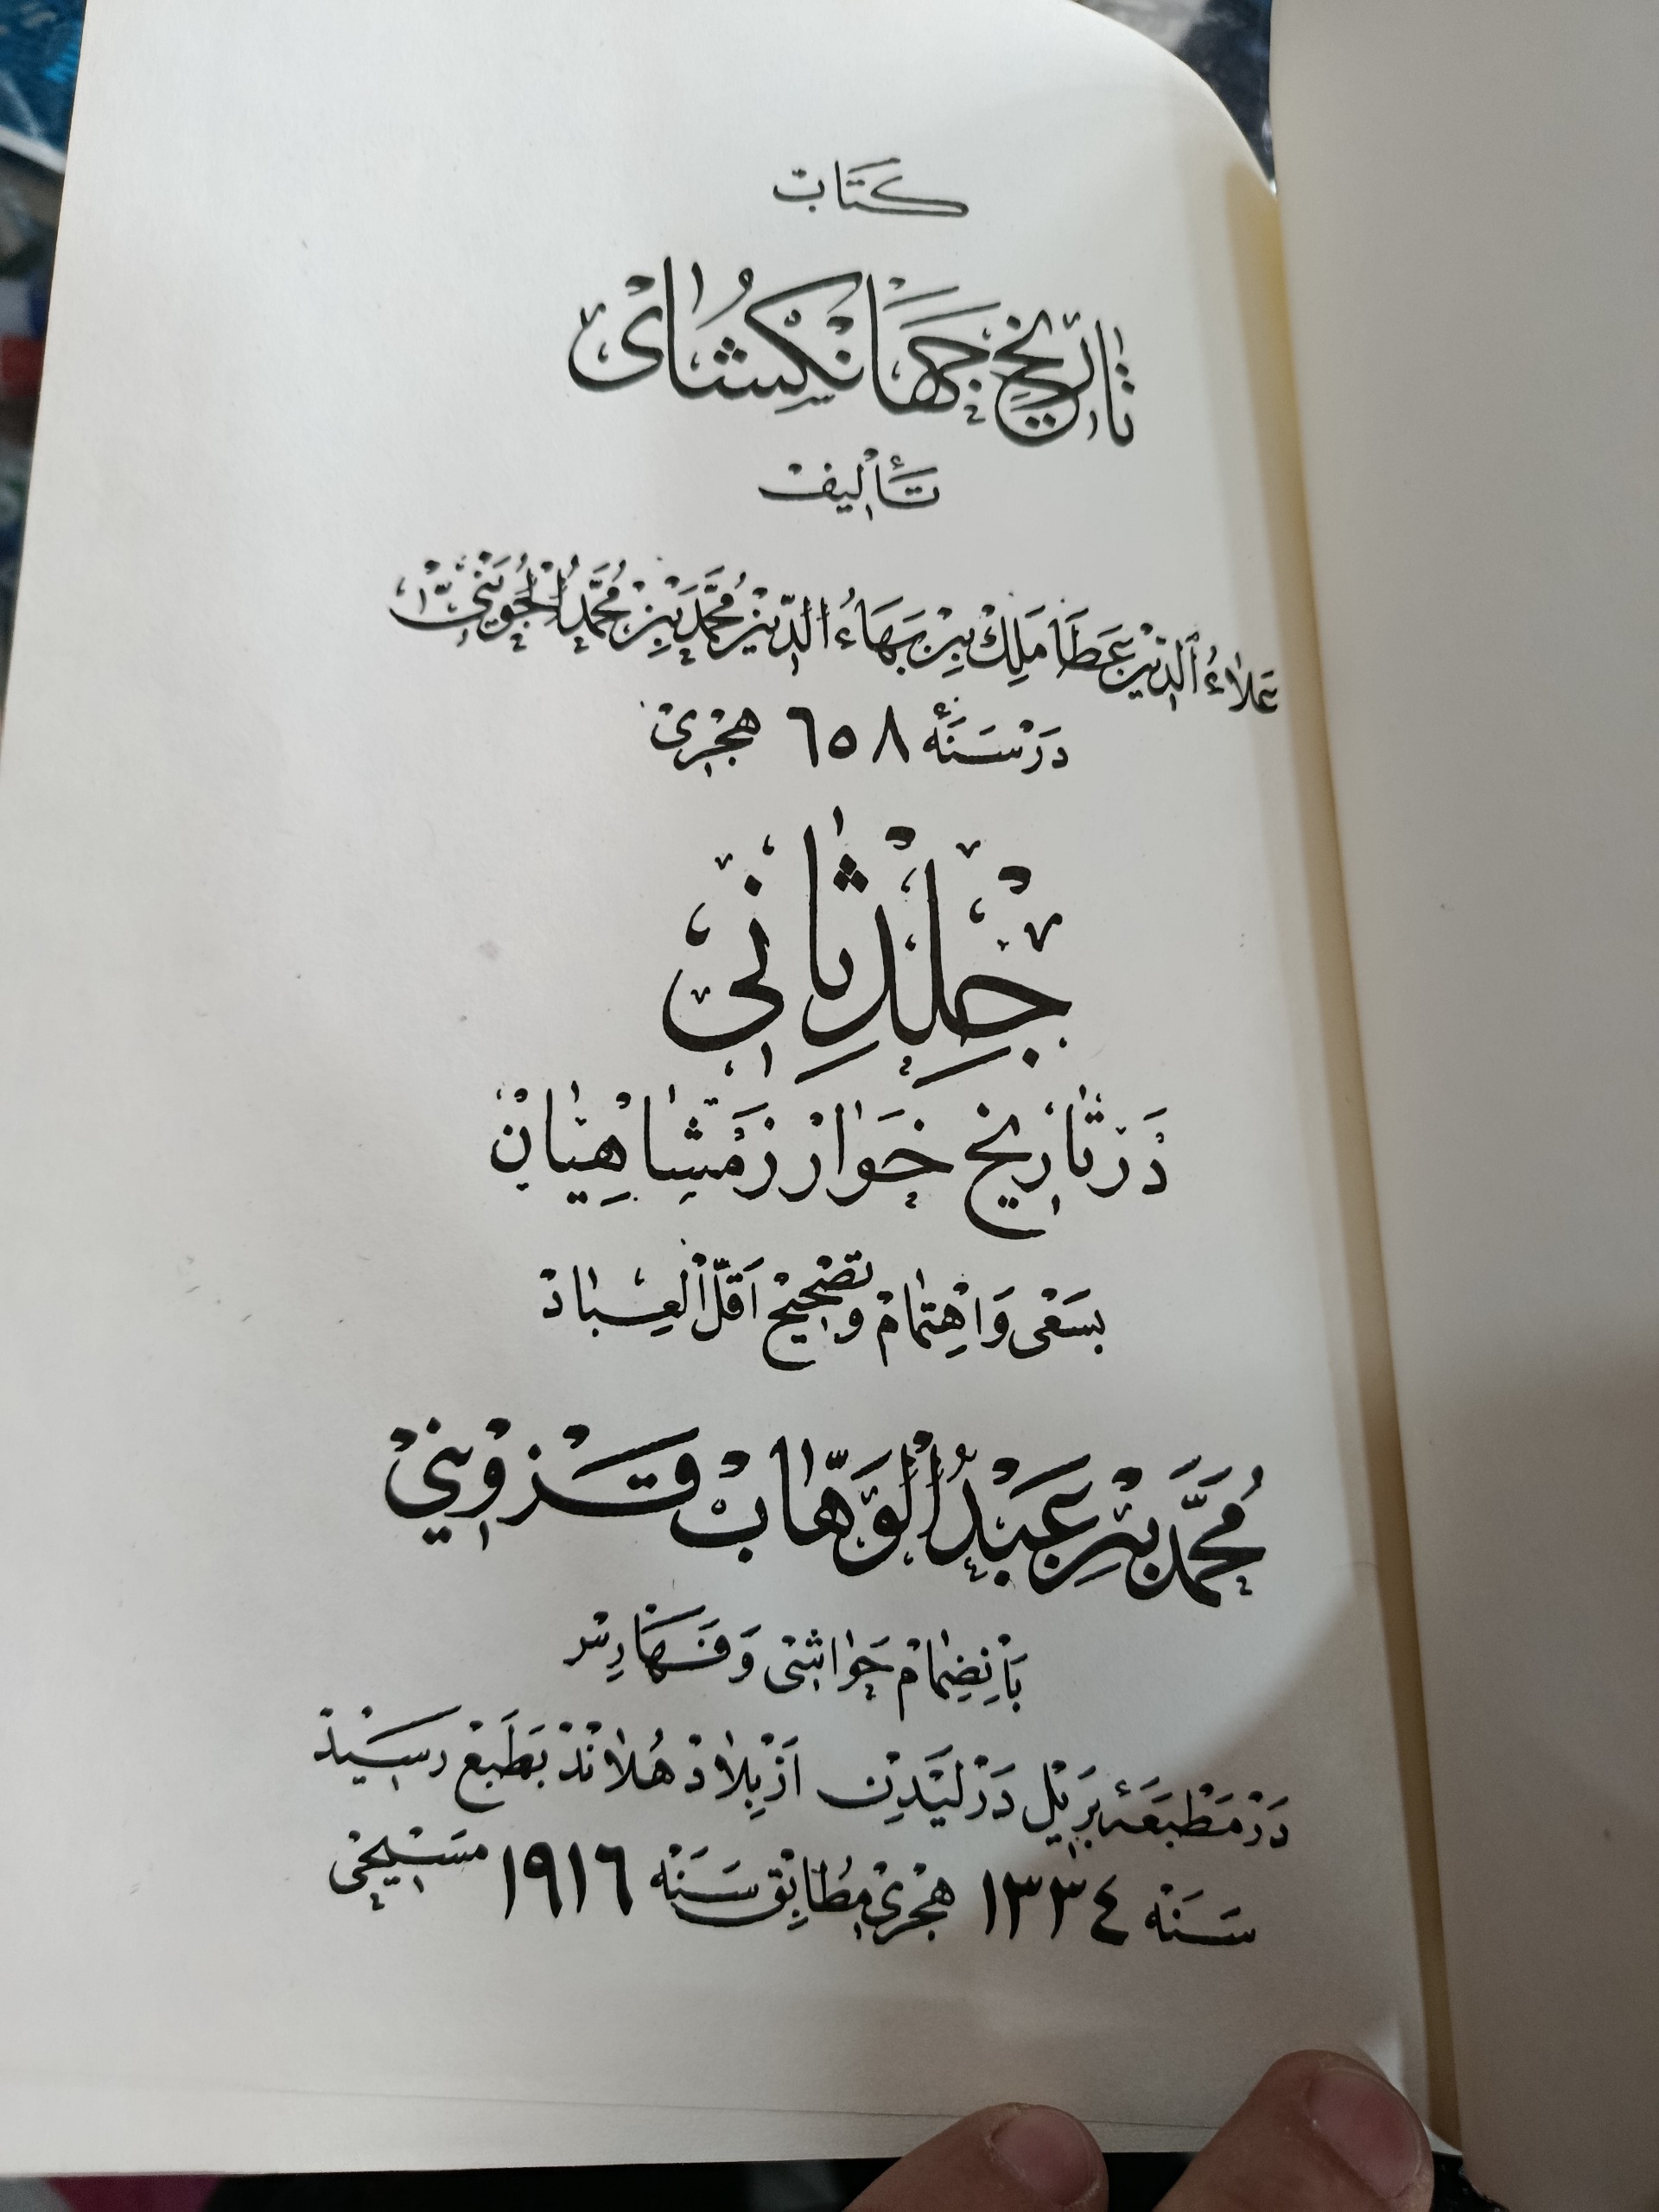 كتاب
تاریخ جهانکشای
تألیف
علاءالدین عطا ملک بن بهاءالدین محمد بن محمد الجوینی
در سنهٔ ٦٥٨ هجری
جلد ثانی
در تاریخ خوارزمشاهیان
بسعی و اهتمام و تصحیح اقل العباد
محمد بن عبدالوهاب قزوینی
بانضمام حواشی و فهارس
در مطبعهٔ بریل در لیدن از بلاد هلاند بطبع رسید
سنه ١٣٣٤ هجری مطابق سنه ١٩١٦ مسیحی